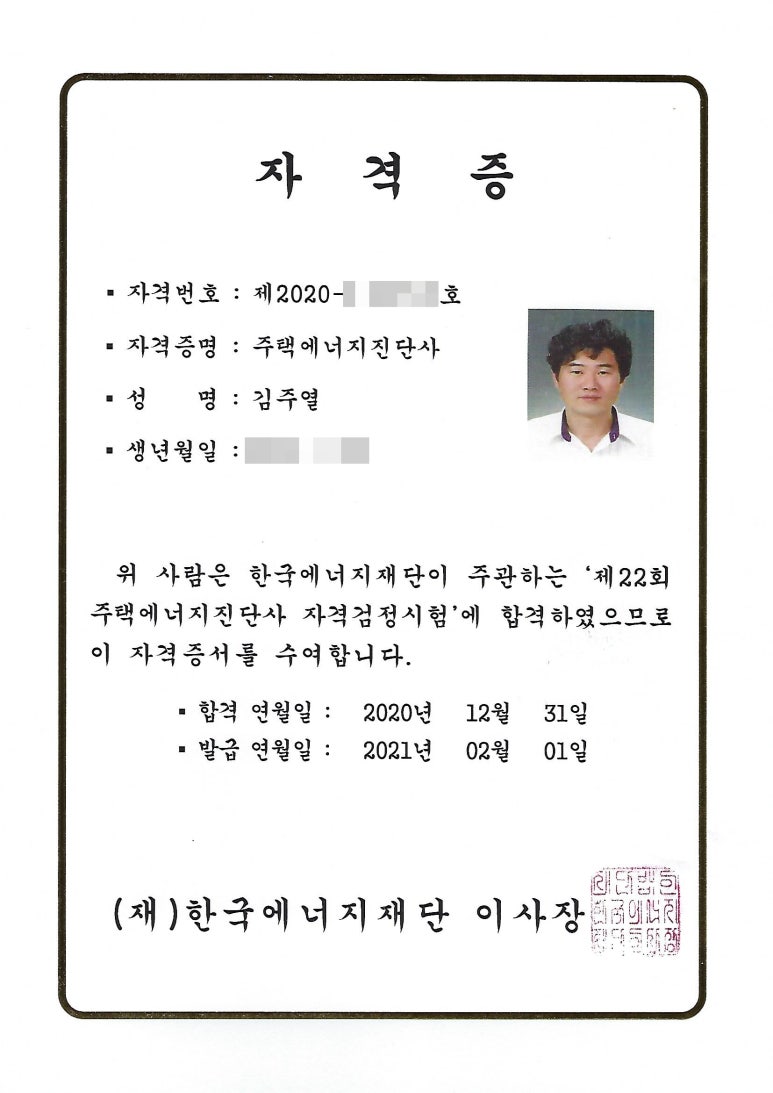 자 격 증
▪ 자격번호 : 제2020- 호
▪ 자격증명 : 주택에너지진단사
▪ 성 명 : 김주열
▪ 생년월일 :
위 사람은 한국에너지재단이 주관하는 ‘제22회
주택에너지진단사 자격검정시험’에 합격하였으므로
이 자격증서를 수여합니다.
▪ 합격 연월일 : 2020년 12월 31일
▪ 발급 연월일 : 2021년 02월 01일
(재)한국에너지재단 이사장